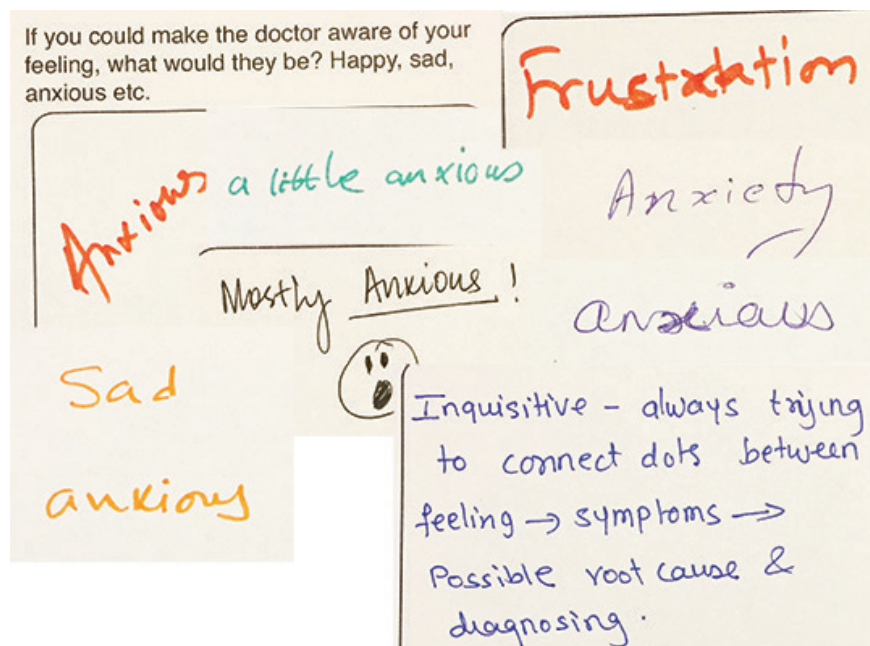 If you could make the doctor aware of your
feeling, what would they be? Happy, sad,
anxious etc.
Frustration
Anxious
a little anxious
Anxiety
Mostly Anxious !
anxious
Sad
anxious
Inquisitive - always trying
to connect dots between
feeling → symptoms →
Possible root cause &
diagnosing.